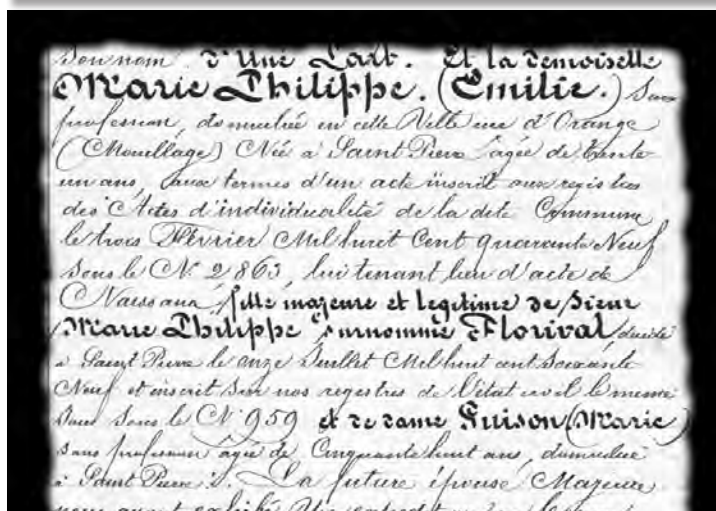 Son nom d'Une Part. Et la demoiselle
Marie Philippe. (Emilie.) Sans
profession, domiciliée en cette Ville rue d'Orange
(Mouillage) Née à Saint Pierre âgée de trente
un ans, aux termes d'un acte inscrit aux registres
des Actes d'individualité de la dite Commune
le trois Février Mil huit Cent quarante Neuf
Sous le N. 2863, lui tenant lieu d'acte de
Naissance, fille majeure et legitime de Sieur
Marie Philippe surnommé Florival, décédé
à Saint Pierre le onze Juillet Mil huit cent Soixante
Neuf et inscrit sur nos registres de l'état civil le même
Jour Sous le N° 959 et de dame Guison (Marie)
sans profession âgée de Cinquante huit ans, domiciliée
à Saint Pierre. La future épouse Majeure
nous ayant exhibé Une